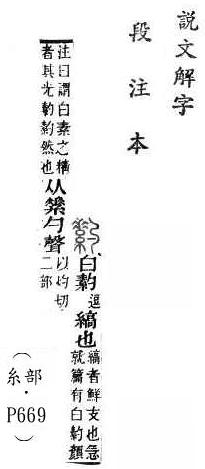 說文解字
段注本
白䋤逗縞也縞者鮮支也急
就篇有白䋤顏
注曰謂白素之精
者其光䋤䋤然也从素勺聲以灼切
二部
(糸部·P669)